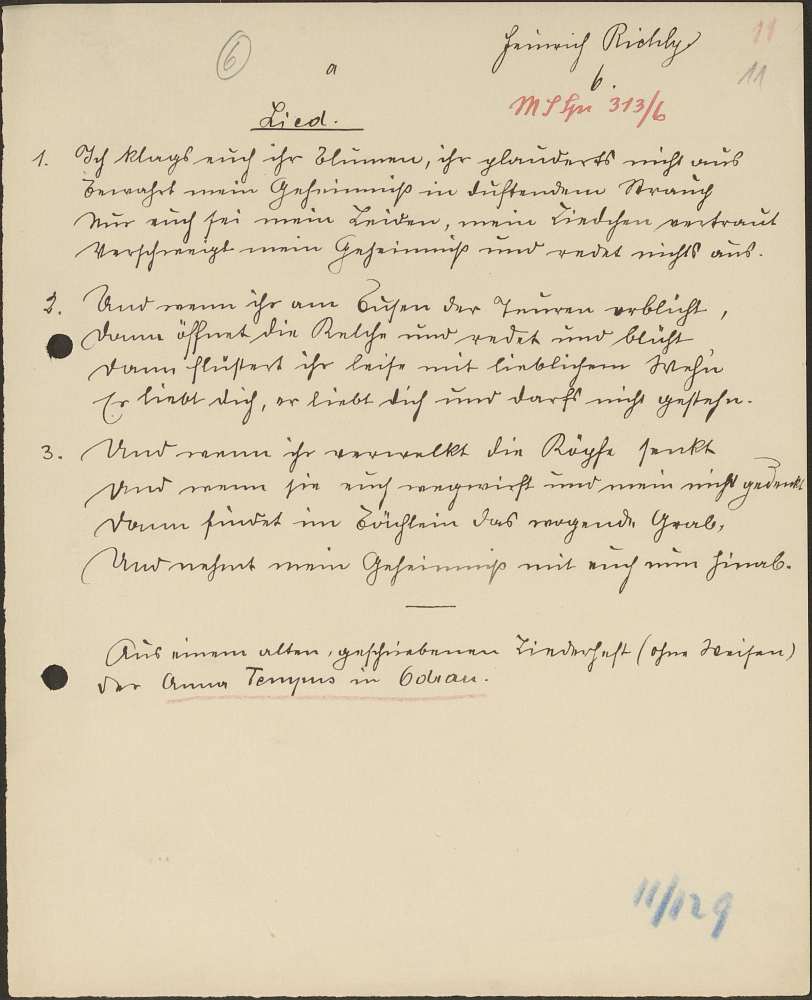 6
a
Heinrich Richly
6.
11
11
313/6
Lied.
1. Ich klags euch ihr Blumen, ihr plauderts nicht aus
Bewahrt mein Geheimniß in duftendem Strauch
Nur euch sei mein Leiden, mein Liedchen vertraut
Verschweigt mein Geheimniß und redet nichts aus.
2. Und wenn ihr am Busen der Teuren erblüht,
Dann öffnet die Kelche und redet und blüht
Dann flüstert ihr leise mit lieblichem Wehn
Er liebt dich, er liebt dich und darfs nicht gestehn.
3. Und wenn ihr verwelkt die Köpfe senkt
Und wenn sie euch wegwirft und mein nicht gedenkt
Dann findet im Bächlein das wogende Grab,
Und nehmt mein Geheimniß mit euch nun hinab.
Aus einem alten, geschriebenen Liederheft (ohne Weisen)
der Anna Tempus in Odrau.
11/129